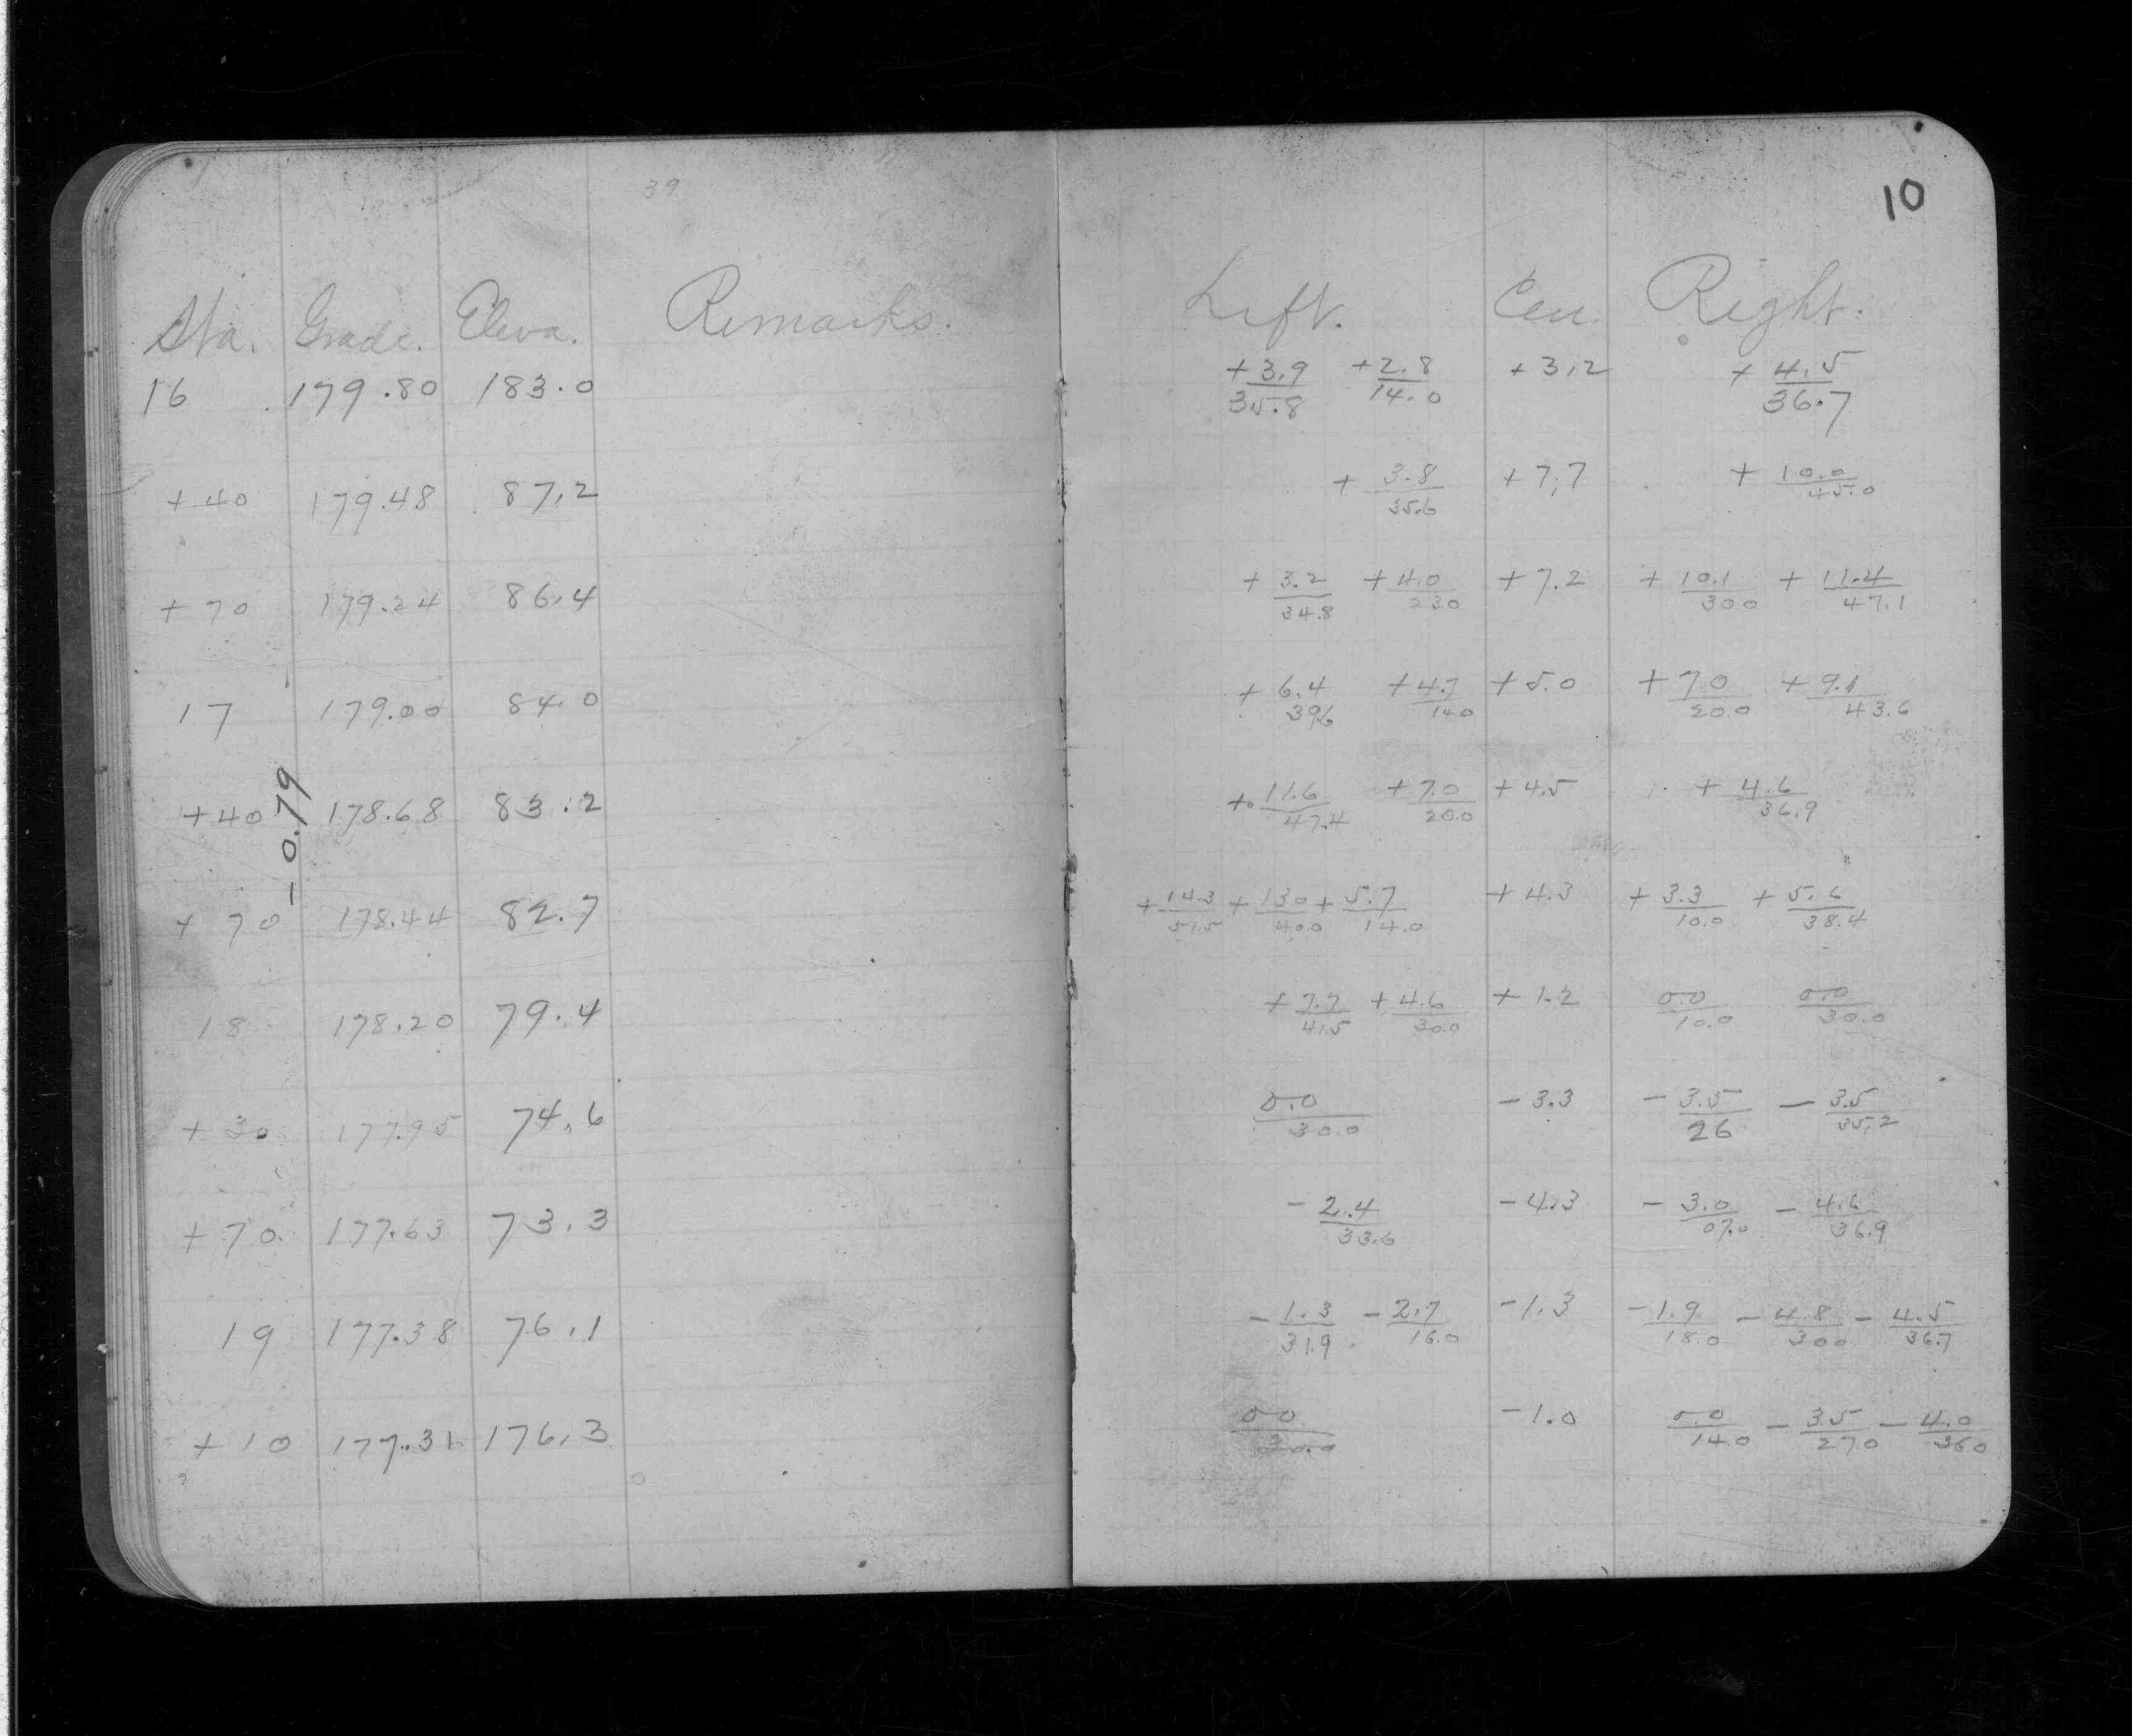 39
10
Sta. Grade. Eleva. Remarks. Left. Cen. Right.
16 179.80 183.0 +3.9/35.8 +2.8/14.0 +3.2 +4.5/36.7
+40 179.48 87.2 +3.8/35.6 +7.7 +10.0/45.0
+70 179.24 86.4 +3.2/34.8 +4.0/23.0 +7.2 +10.1/30.0 +11.4/47.1
17 179.00 84.0 +6.4/39.6 +4.7/14.0 +5.0 +7.0/20.0 +9.1/43.6
-0.79
+40 178.68 83.2 +11.6/47.4 +7.0/20.0 +4.5 +4.6/36.9
+70 178.44 82.7 +14.3/51.5 +13.0/40.0 +5.7/14.0 +4.3 +3.3/10.0 +5.6/38.4
18 178.20 79.4 +7.7/41.5 +4.6/30.0 +1.2 0.0/10.0 0.0/30.0
+30 177.95 74.6 0.0/30.0 -3.3 -3.5/26 -3.5/35.2
+70 177.63 73.3 -2.4/33.6 -4.3 -3.0/07.0 -4.6/36.9
19 177.38 76.1 -1.3/31.9 -2.7/16.0 -1.3 -1.9/18.0 -4.8/30.0 -4.5/36.7
+10 177.31 176.3 0.0/30.0 -1.0 0.0/14.0 -3.5/27.0 -4.0/36.0